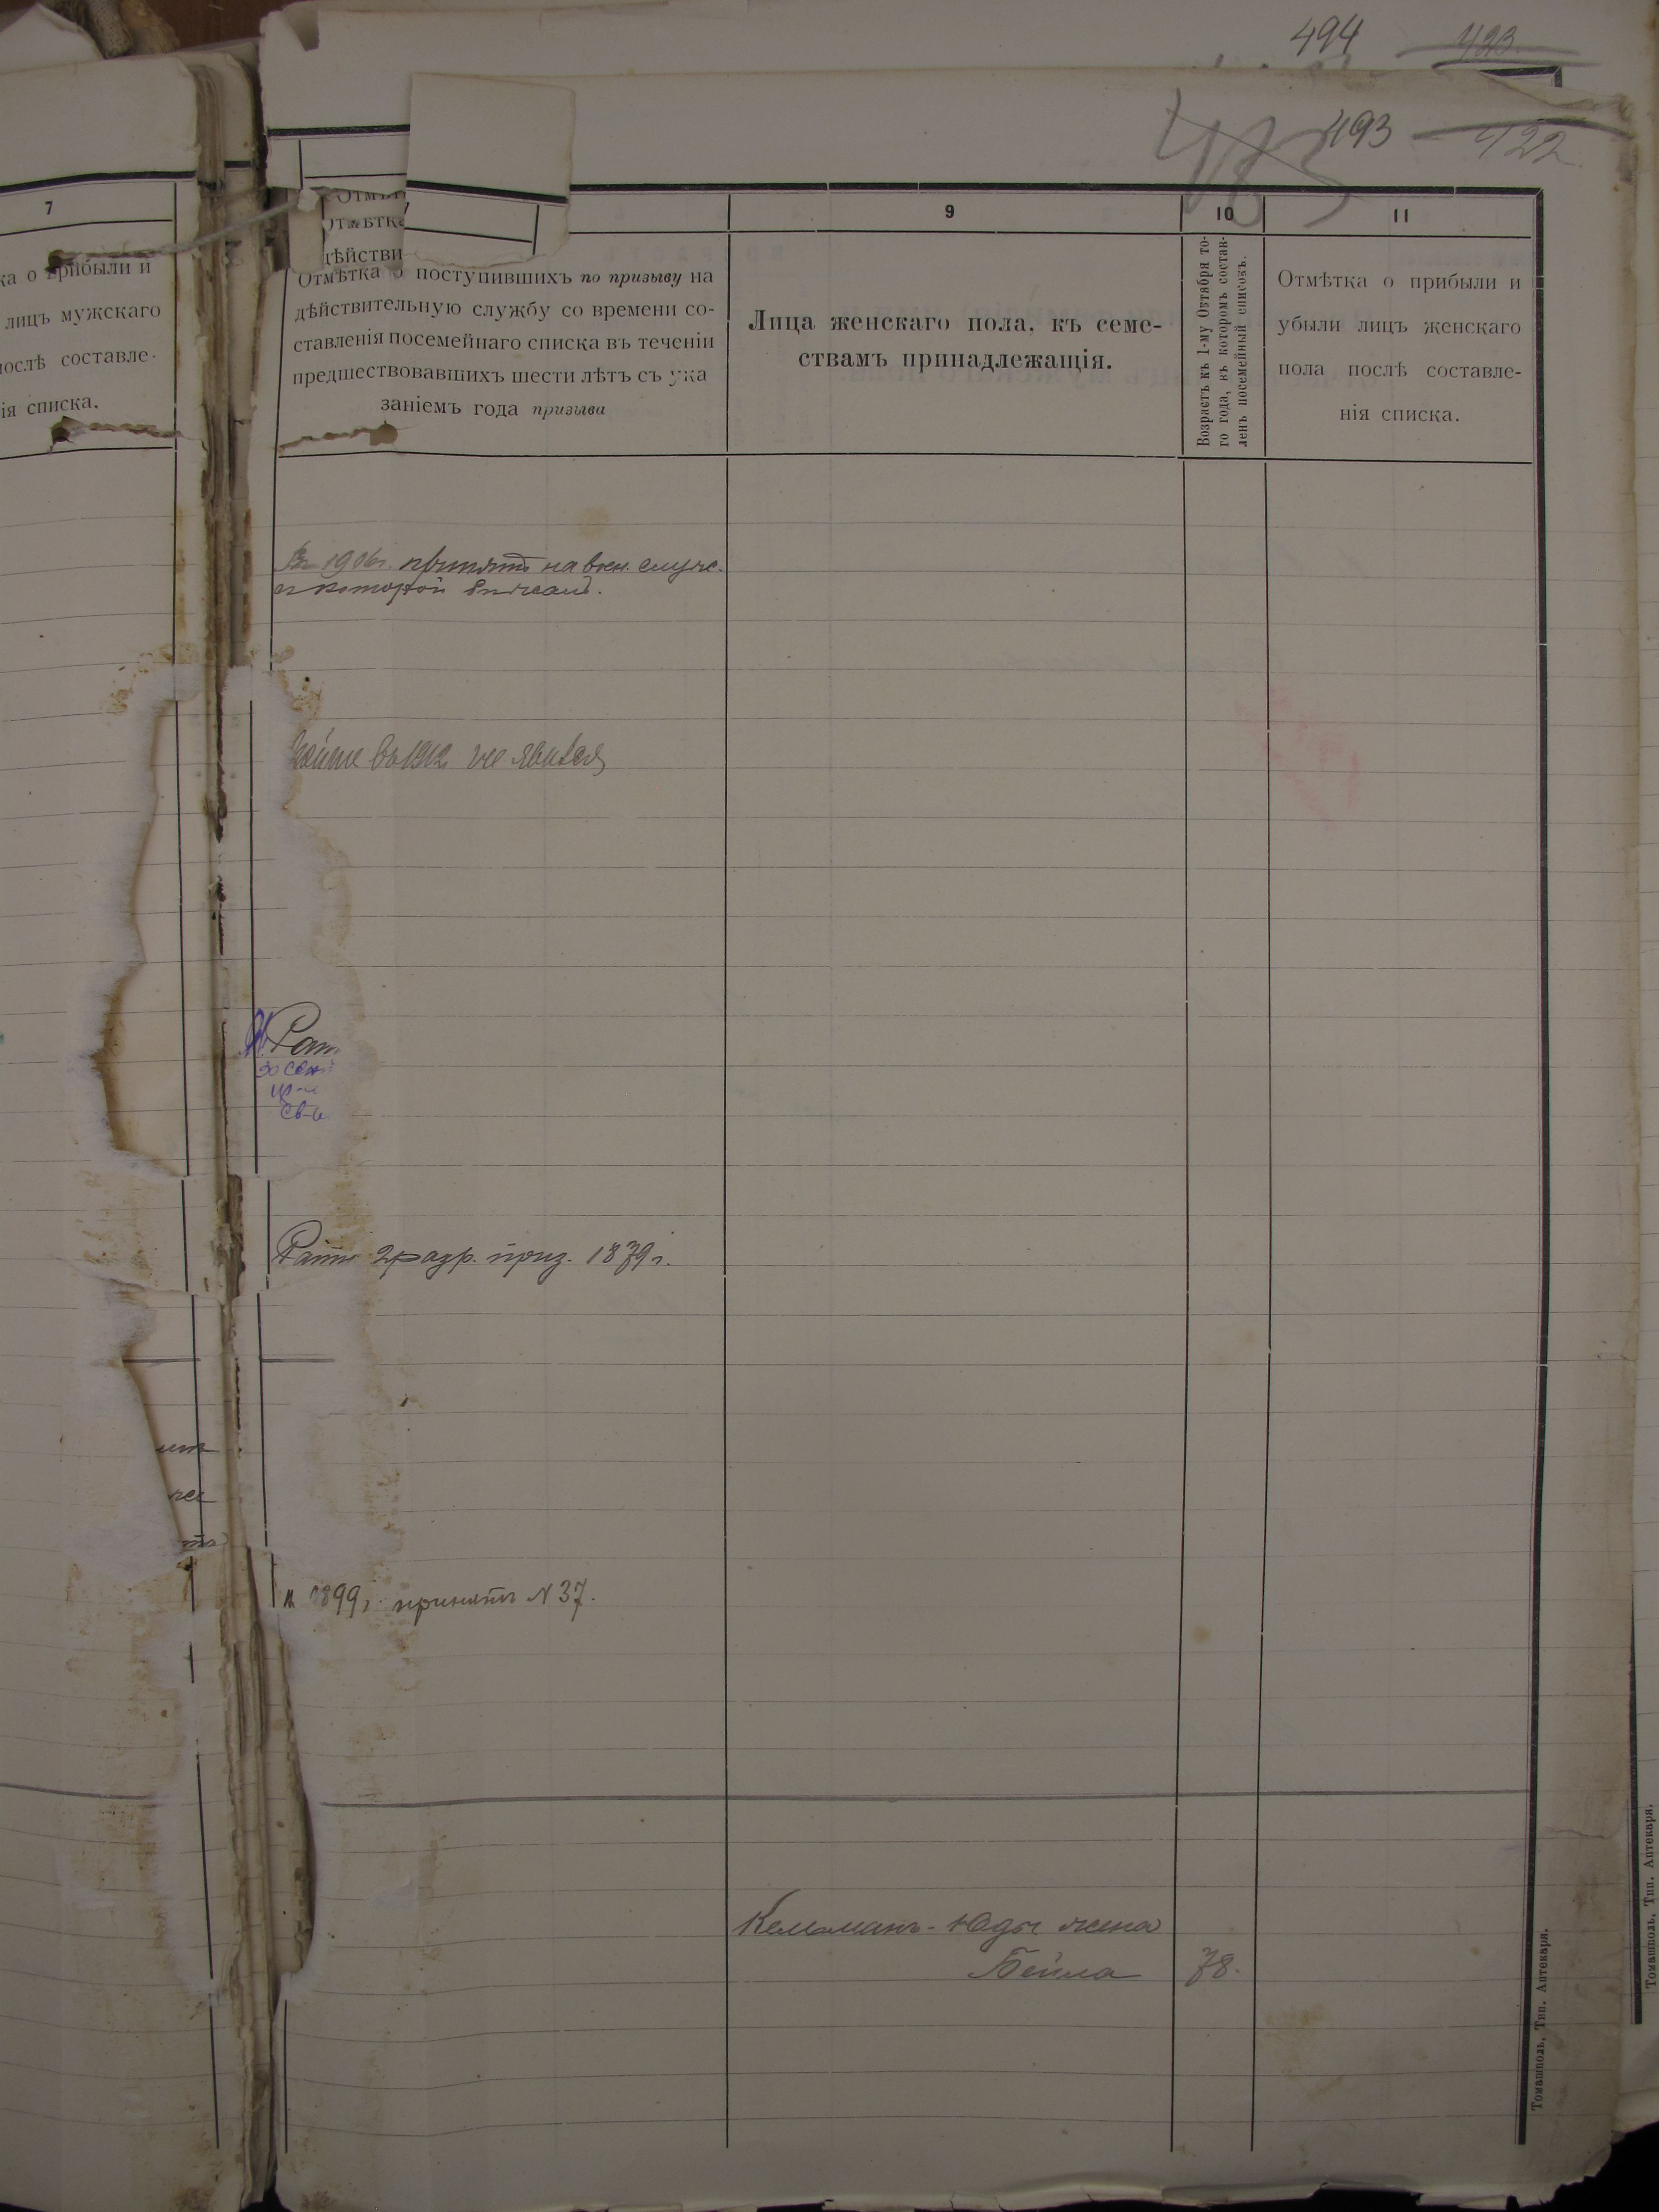 494 423.
493 — 422.
485
7
ка о прибыли и
лицъ мужскаго
послѣ составле-
ія списка.
Отмѣт
Отмѣтка
дѣйстви
Отмѣтка о поступившихъ по призыву на
дѣйствительную службу со времени со-
ставленія посемейнаго списка въ теченіи
предшествовавшихъ шести лѣтъ съ ука
заніемъ года призыва
9
Лица женскаго пола, къ семе-
ствамъ принадлежащія.
10
Возрастъ къ 1-му Октября то-
го года, къ которомъ состав-
ленъ посемейный списокъ.
11
Отмѣтка о прибыли и
убыли лицъ женскаго
пола послѣ составле-
нія списка.
Въ 1906г. принятъ на воен. служ.
съ которой бѣжалъ.
въ 1912 не явился
Рат
30 Сен
Св-
Ратн 2 разр. приз. 1879 г.
1899 г. принятъ N 37.
Кельманъ-Юды жена
Бейла 78.
Томашполь, Тип. Аптекаря.
Томашполь, Тип. Аптекаря.